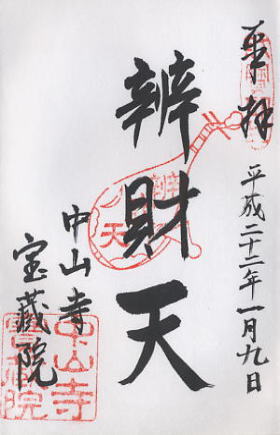 奉拝
平成二十二年一月九日
辨財天
中山寺
宝蔵院
辨
天
中山寺
宝蔵院